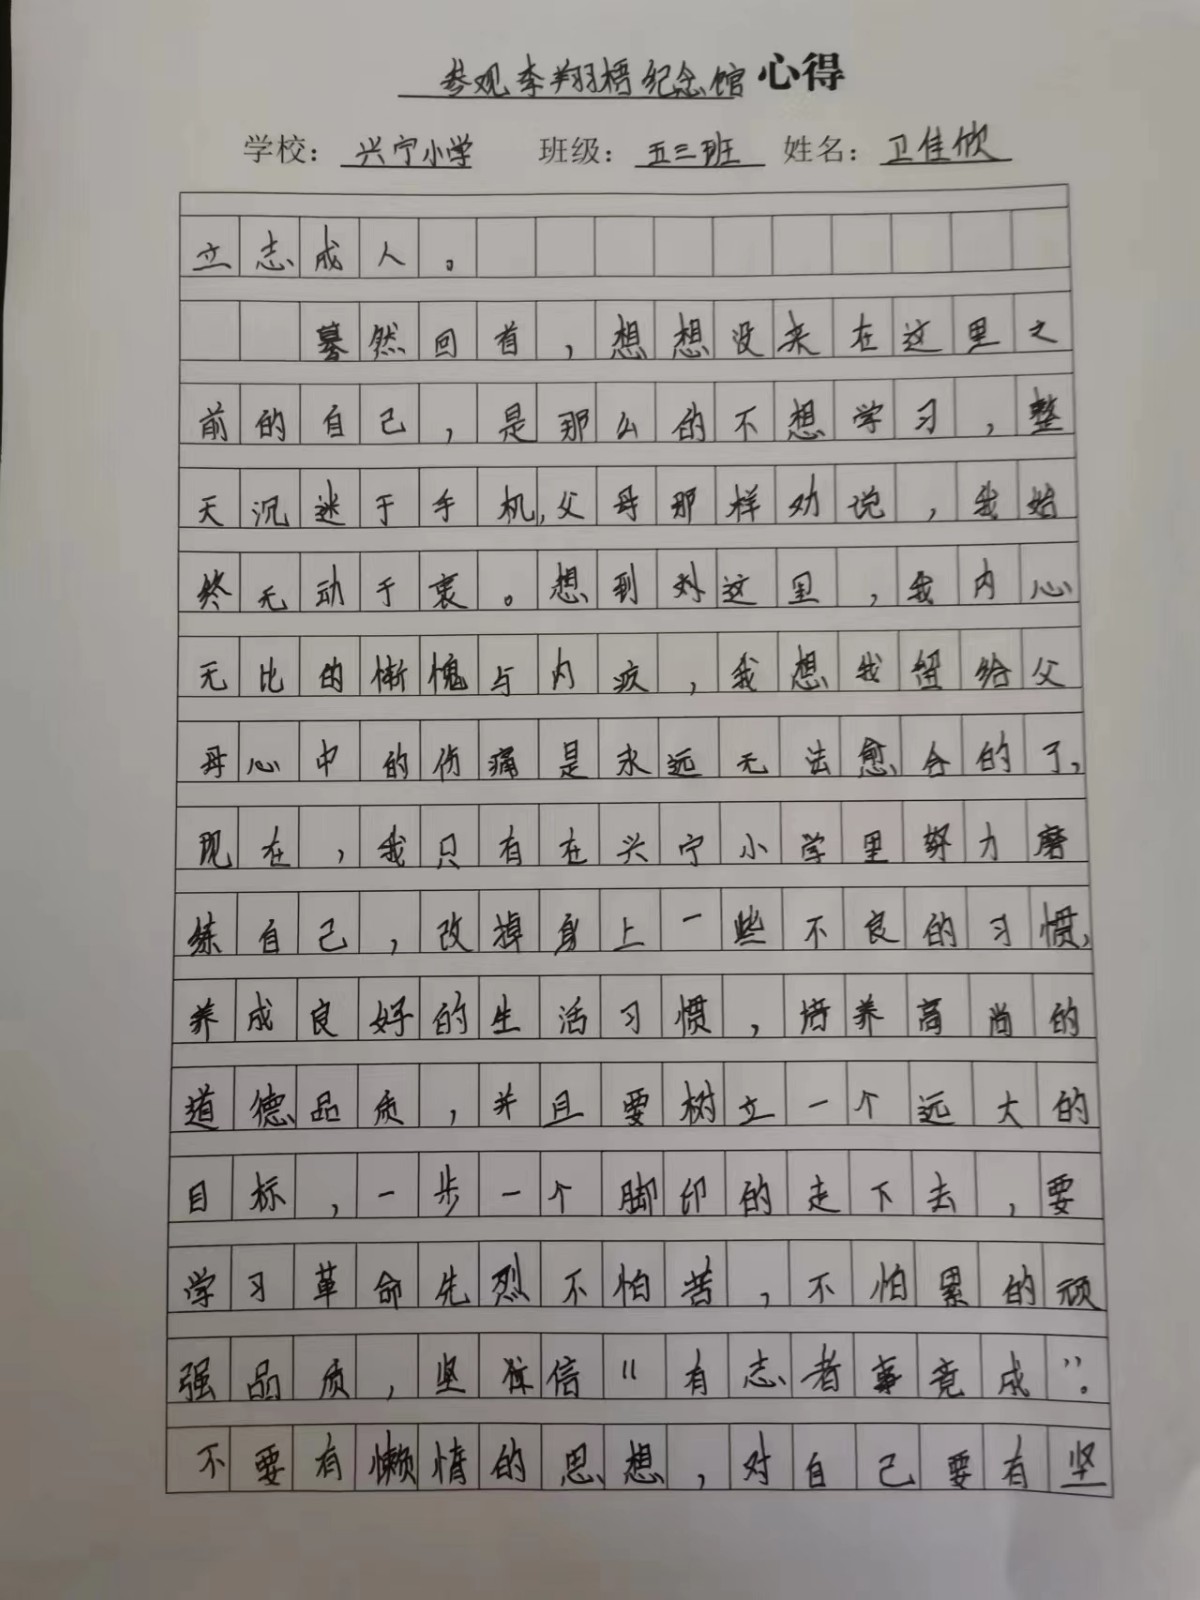 参观李翔梧纪念馆心得
学校：兴宁小学 班级：五三班 姓名：卫佳欣
立志成人。
蓦然回首，想想没来在这里之
前的自己，是那么的不想学习，整
天沉迷于手机，父母那样劝说，我始
终无动于衷。想到对这里，我内心
无比的惭愧与内疚，我想我留给父
母心中的伤痛是永远无法愈合的了，
现在，我只有在兴宁小学里努力磨
练自己，改掉身上一些不良的习惯，
养成良好的生活习惯，培养高尚的
道德品质，并且要树立一个远大的
目标，一步一个脚印的走下去，要
学习革命先烈不怕苦，不怕累的顽
强品质，坚信“有志者事竟成”。
不要有懒惰的思想，对自己要有坚